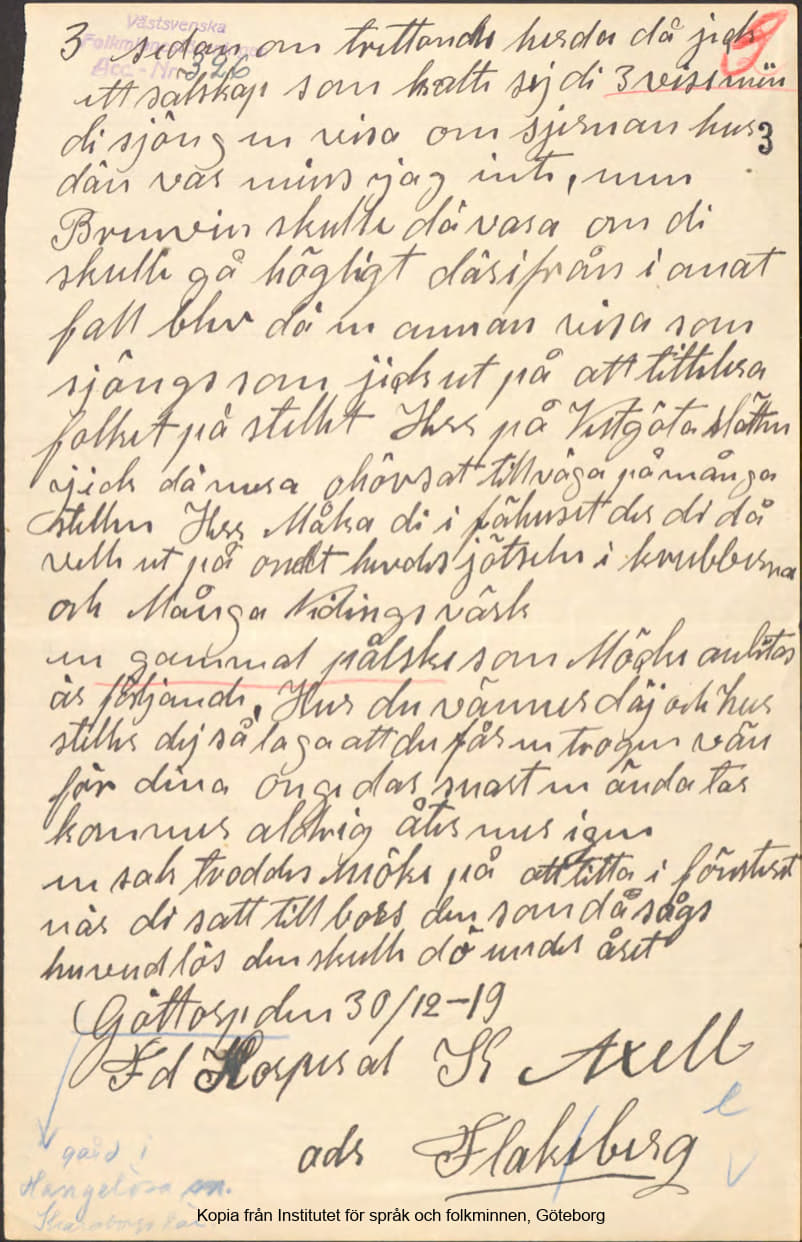 Västsvenska
Folkminnes
Acc.-Nr. 326
3 sedan om trettande herda då jick
ett sälskap som kalte sej di 3 visemän
di sjöng en visa om stjernan hur
3
dän var mins jag inte, men
Brenvin skulle då vara om di
skulle gå högligt därifrån i anat
fall blev då en annan visa som
sjöngs som jick ut på att tittulera
folket på stellet Her på Vestgöta slätten
jick då mera ohövsat tillväga på många
stellen Her Måka di i fähuset der di då
velte ut på andet herdes jötseln i krubberna
och Många Nidings värk
en gammal pålske som Möcke anlitas
är följande, Hur du vänner däj och hur
steller dej så laga att du får en trogen vän
för dina onge dar snart en ända tar
kommer aldrig åter mer igen
en sak trodde Möke på att titta i fönstret
när di satt till bors den som då sågs
huvudlös den skulle dö under året
Göttorp den 30/12-19
Fd Korpral K Axell
adr Flakeberg
gård i
Hangelösa sn.
Skaraborgs län
Kopia från Institutet för språk och folkminnen, Göteborg